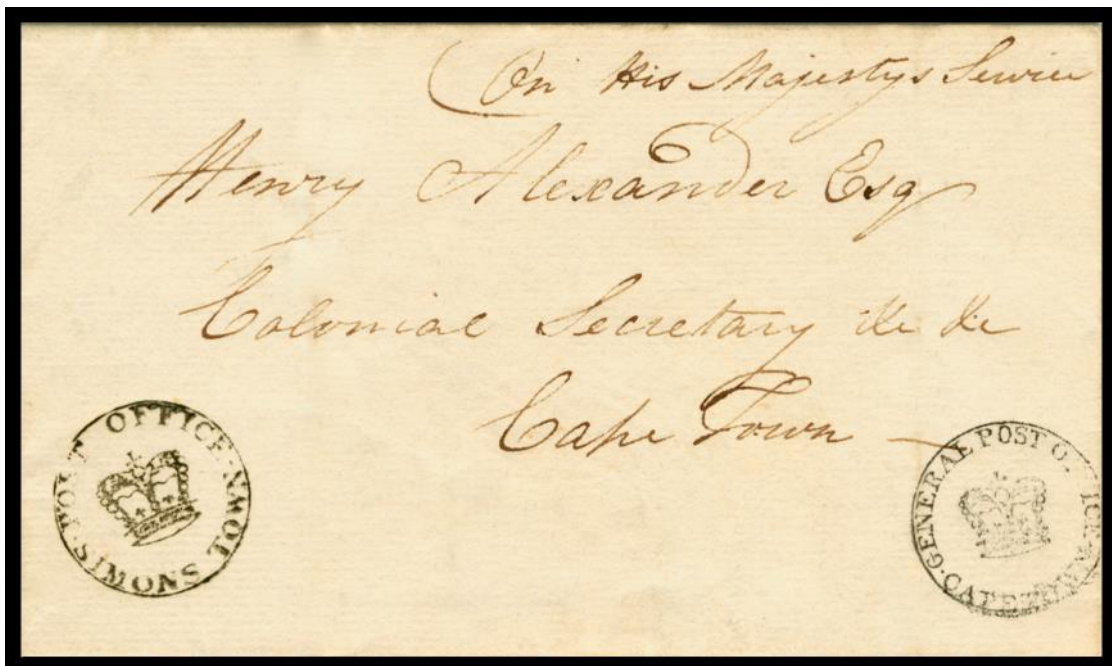 On His Majestys Service
Henry Alexander Esq
Colonial Secretary &c &c
Cape Town
POST OFFICE
SIMONS TOWN
GENERAL POST OFFICE
CAPE TOWN